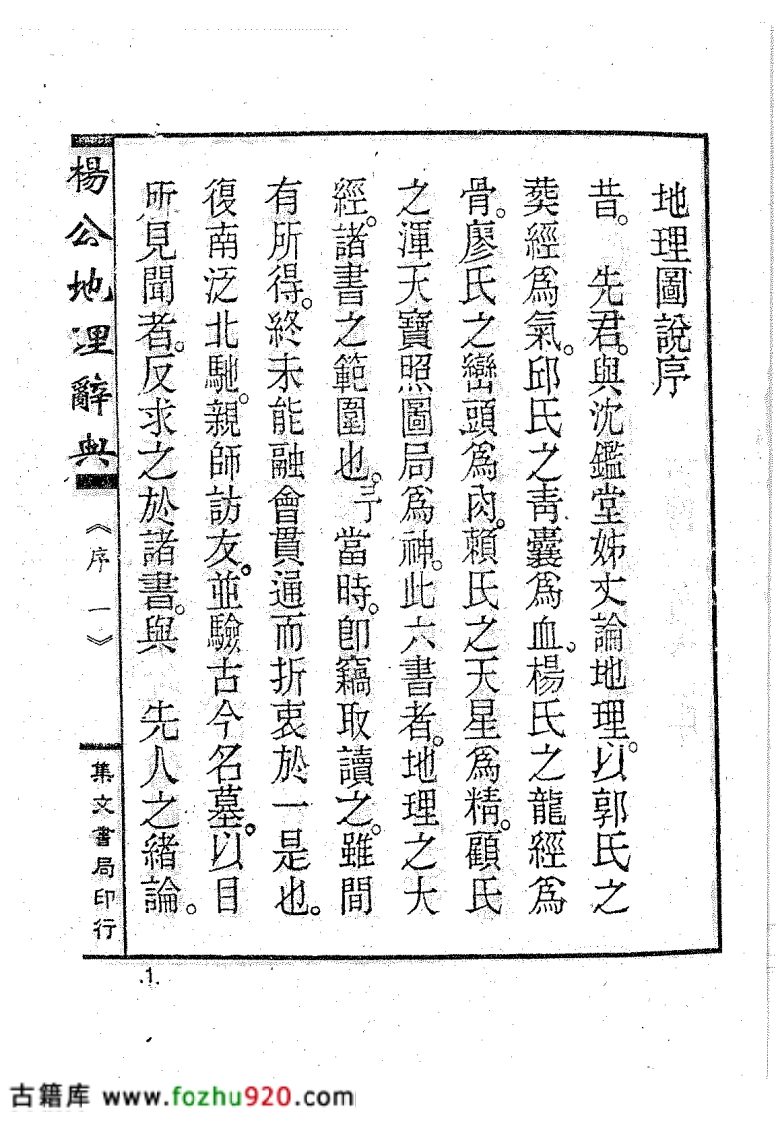 地理圖說序
昔。　先君。與沈鑑堂姊丈論地理。以郭氏之
葬經爲氣。邱氏之靑囊爲血。楊氏之龍經爲
骨。廖氏之巒頭爲肉。賴氏之天星爲精。顧氏
之渾天寶照圖局爲神。此六書者。地理之大
經。諸書之範圍也。予當時。卽竊取讀之。雖間
有所得。終未能融會貫通而折衷於一是也。
復南泛北馳。親師訪友。並驗古今名墓。以目
所見聞者。反求之於諸書。與　先人之緒論。
楊公地理辭典
《序一》
集文書局印行
.1.
古籍库 www.fozhu920.com